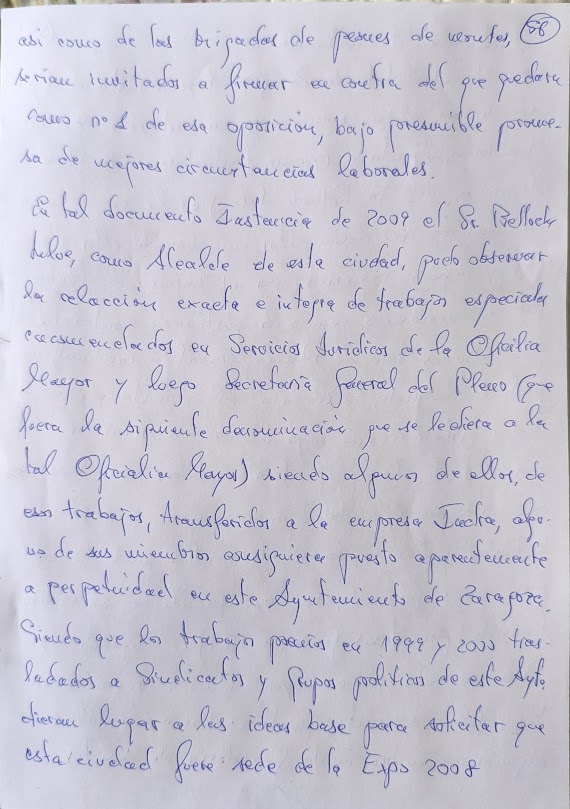 58
asi como de las brigadas de peones de montes,
serian invitados a firmar en contra del que quedara
como nº 1 de esa oposición, bajo presumible prome-
sa de mejores circunstancias laborales.
En tal documento Instancia de 2009 el Sr. Belloch
Julve, como Alcalde de esta ciudad, pudo observar
la relacción exacta e integra de trabajos especiales
encomendados en Servicios Jurídicos de la Oficilia
Mayor y luego Secretaría General del Pleno (que
fuera la siguiente denominación que se le diera a la
tal Oficialia Mayor) siendo algunos de ellos, de
esos trabajos, transferidos a la empresa Indra, algu-
no de sus miembros consiguiera puesto aparentemente
a perpetuidad en este Ayuntamiento de Zaragoza.
Siendo que los trabajos previos en 1999 y 2000 tras-
ladados a Sindicatos y Grupos politicos de este Ayto
dieran lugar a las ideas base para solicitar que
esta ciudad fuere sede de la Expo 2008